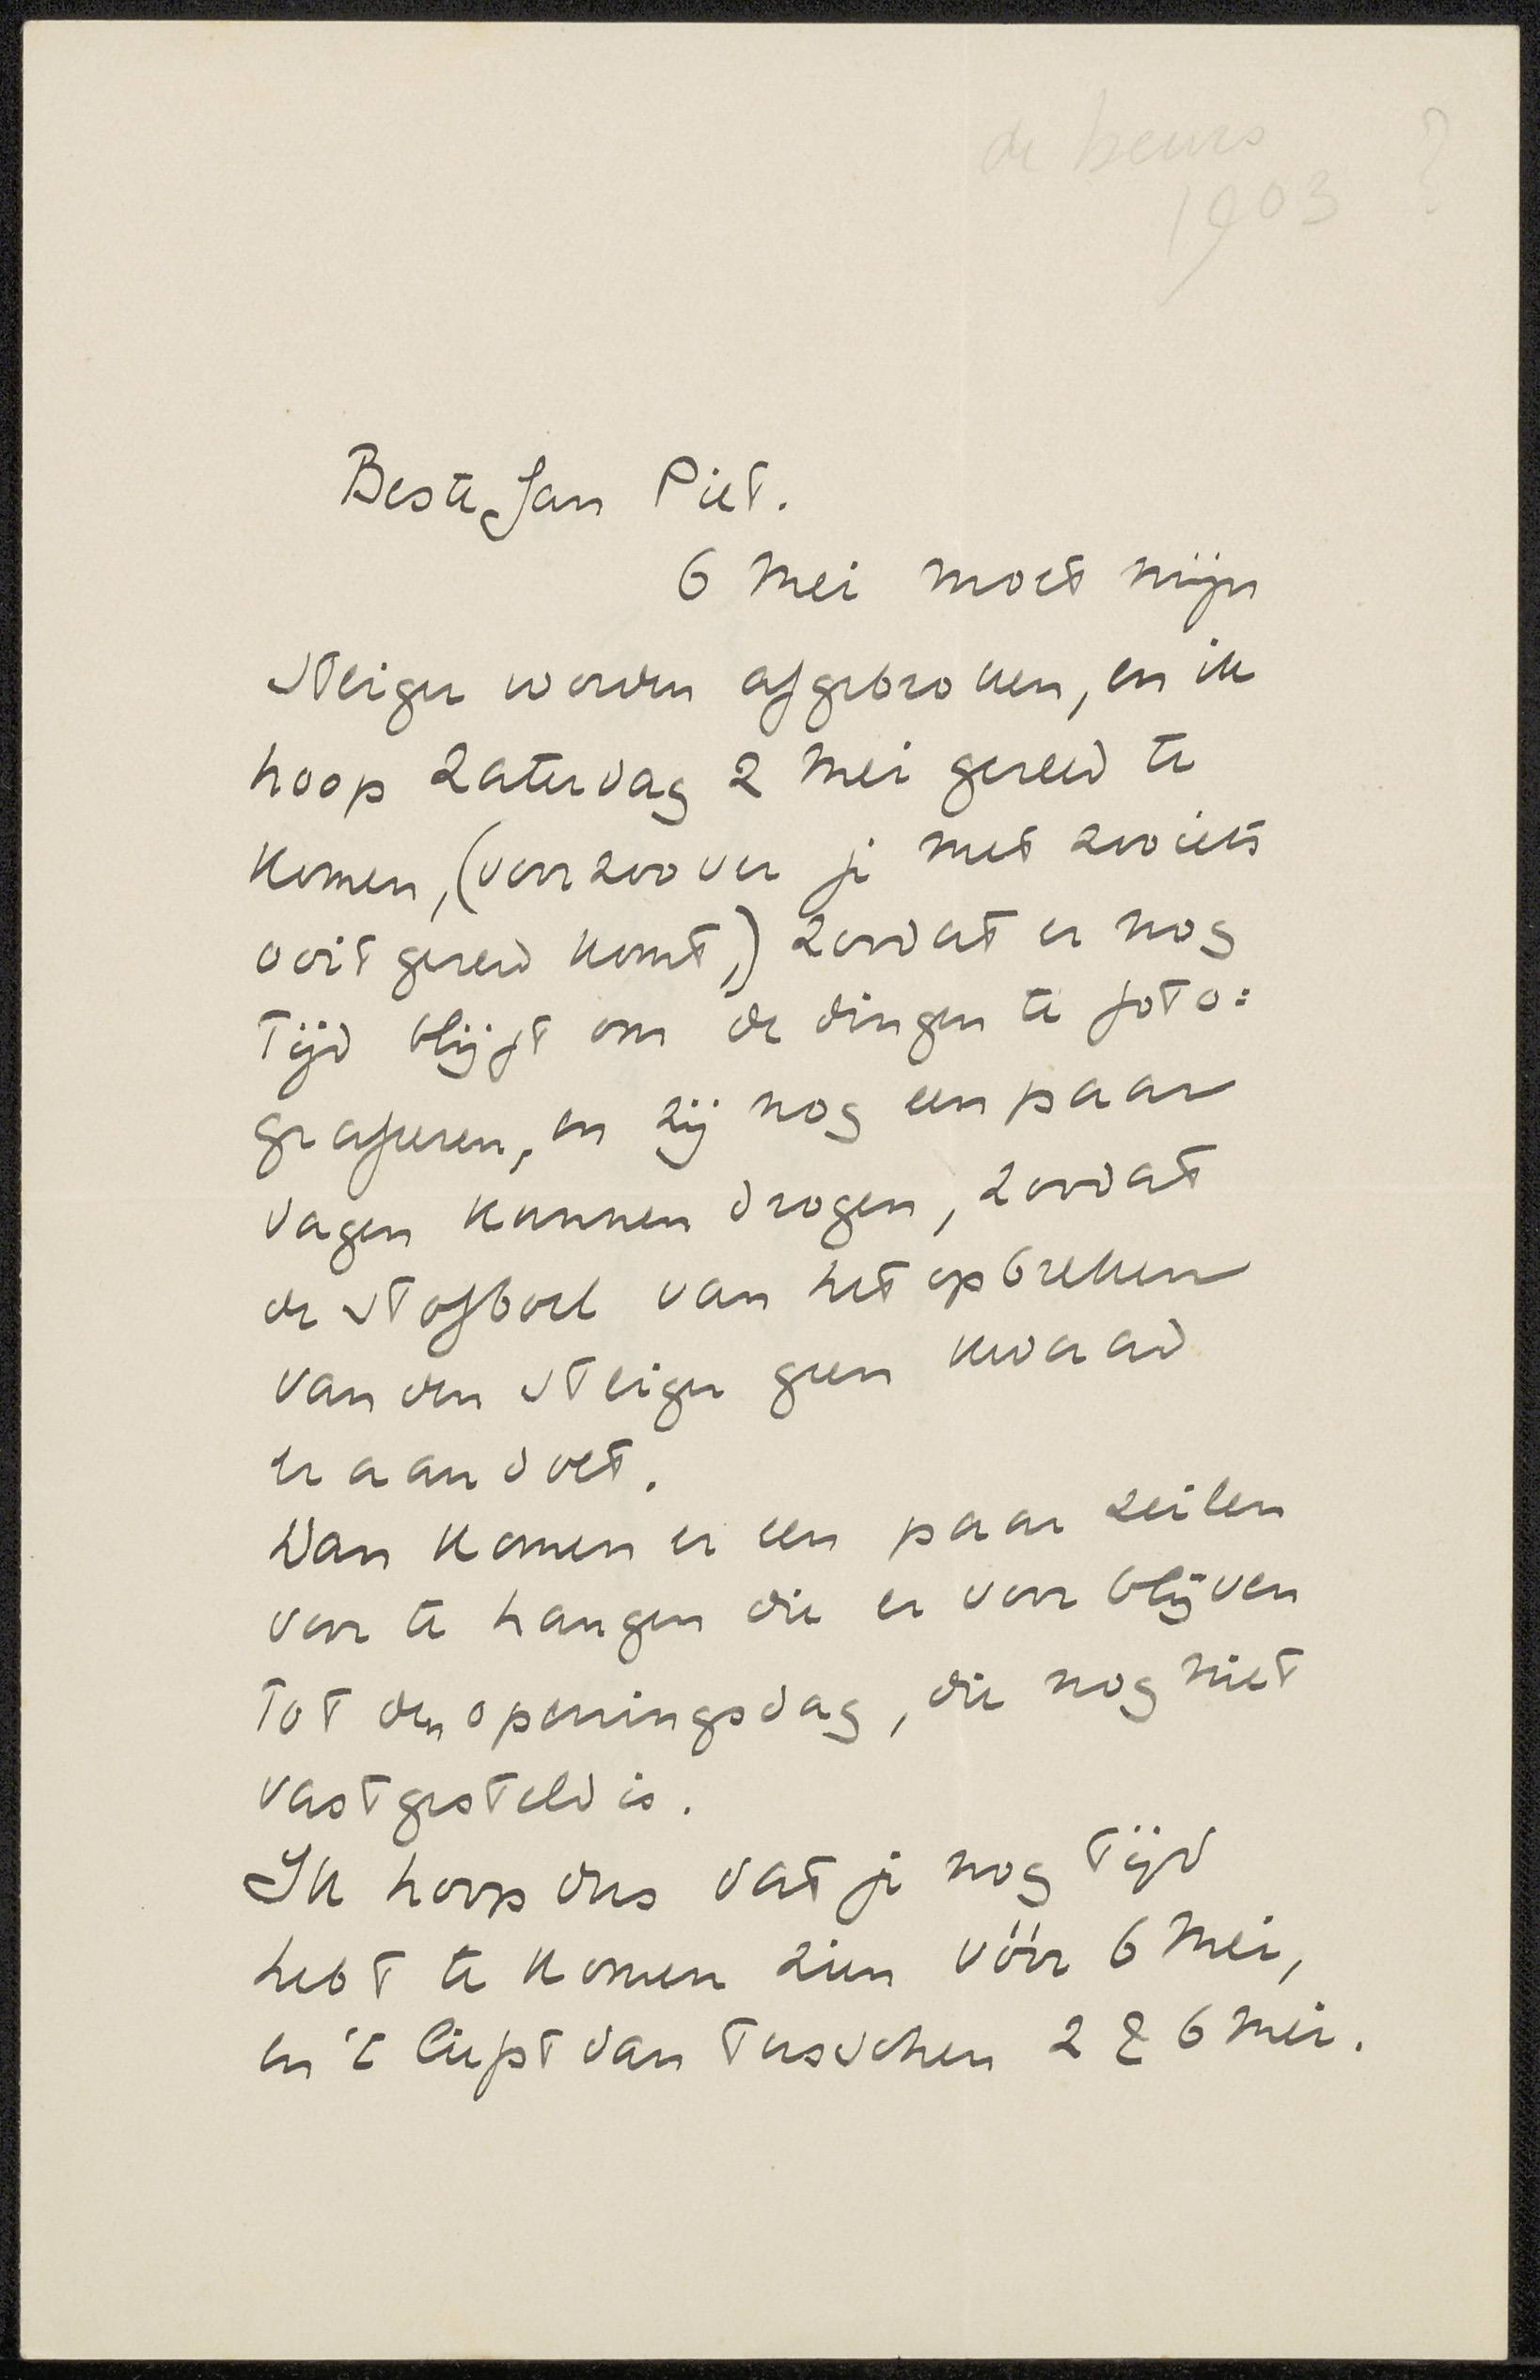 de beurs ?
1903
Beste Jan Piet.
6 Mei moet mijn
steiger worden afgebroken, en ik
hoop Zaterdag 2 Mei gereed te
komen, (voorzoover je met zooiets
ooit gereed komt,) zoodat er nog
tijd blijft om de dingen te foto=
graferen, en zij nog een paar
dagen kunnen drogen, zoodat
de stofboel van het opbreken
van den steiger geen kwaad
er aan doet.
Dan komen er een paar zeilen
voor te hangen die er voor blijven
tot den openingsdag, die nog niet
vastgesteld is.
Ik hoop dus dat je nog tijd
hebt te komen zien vóór 6 Mei,
en 't liefst dan tusschen 2 & 6 Mei.